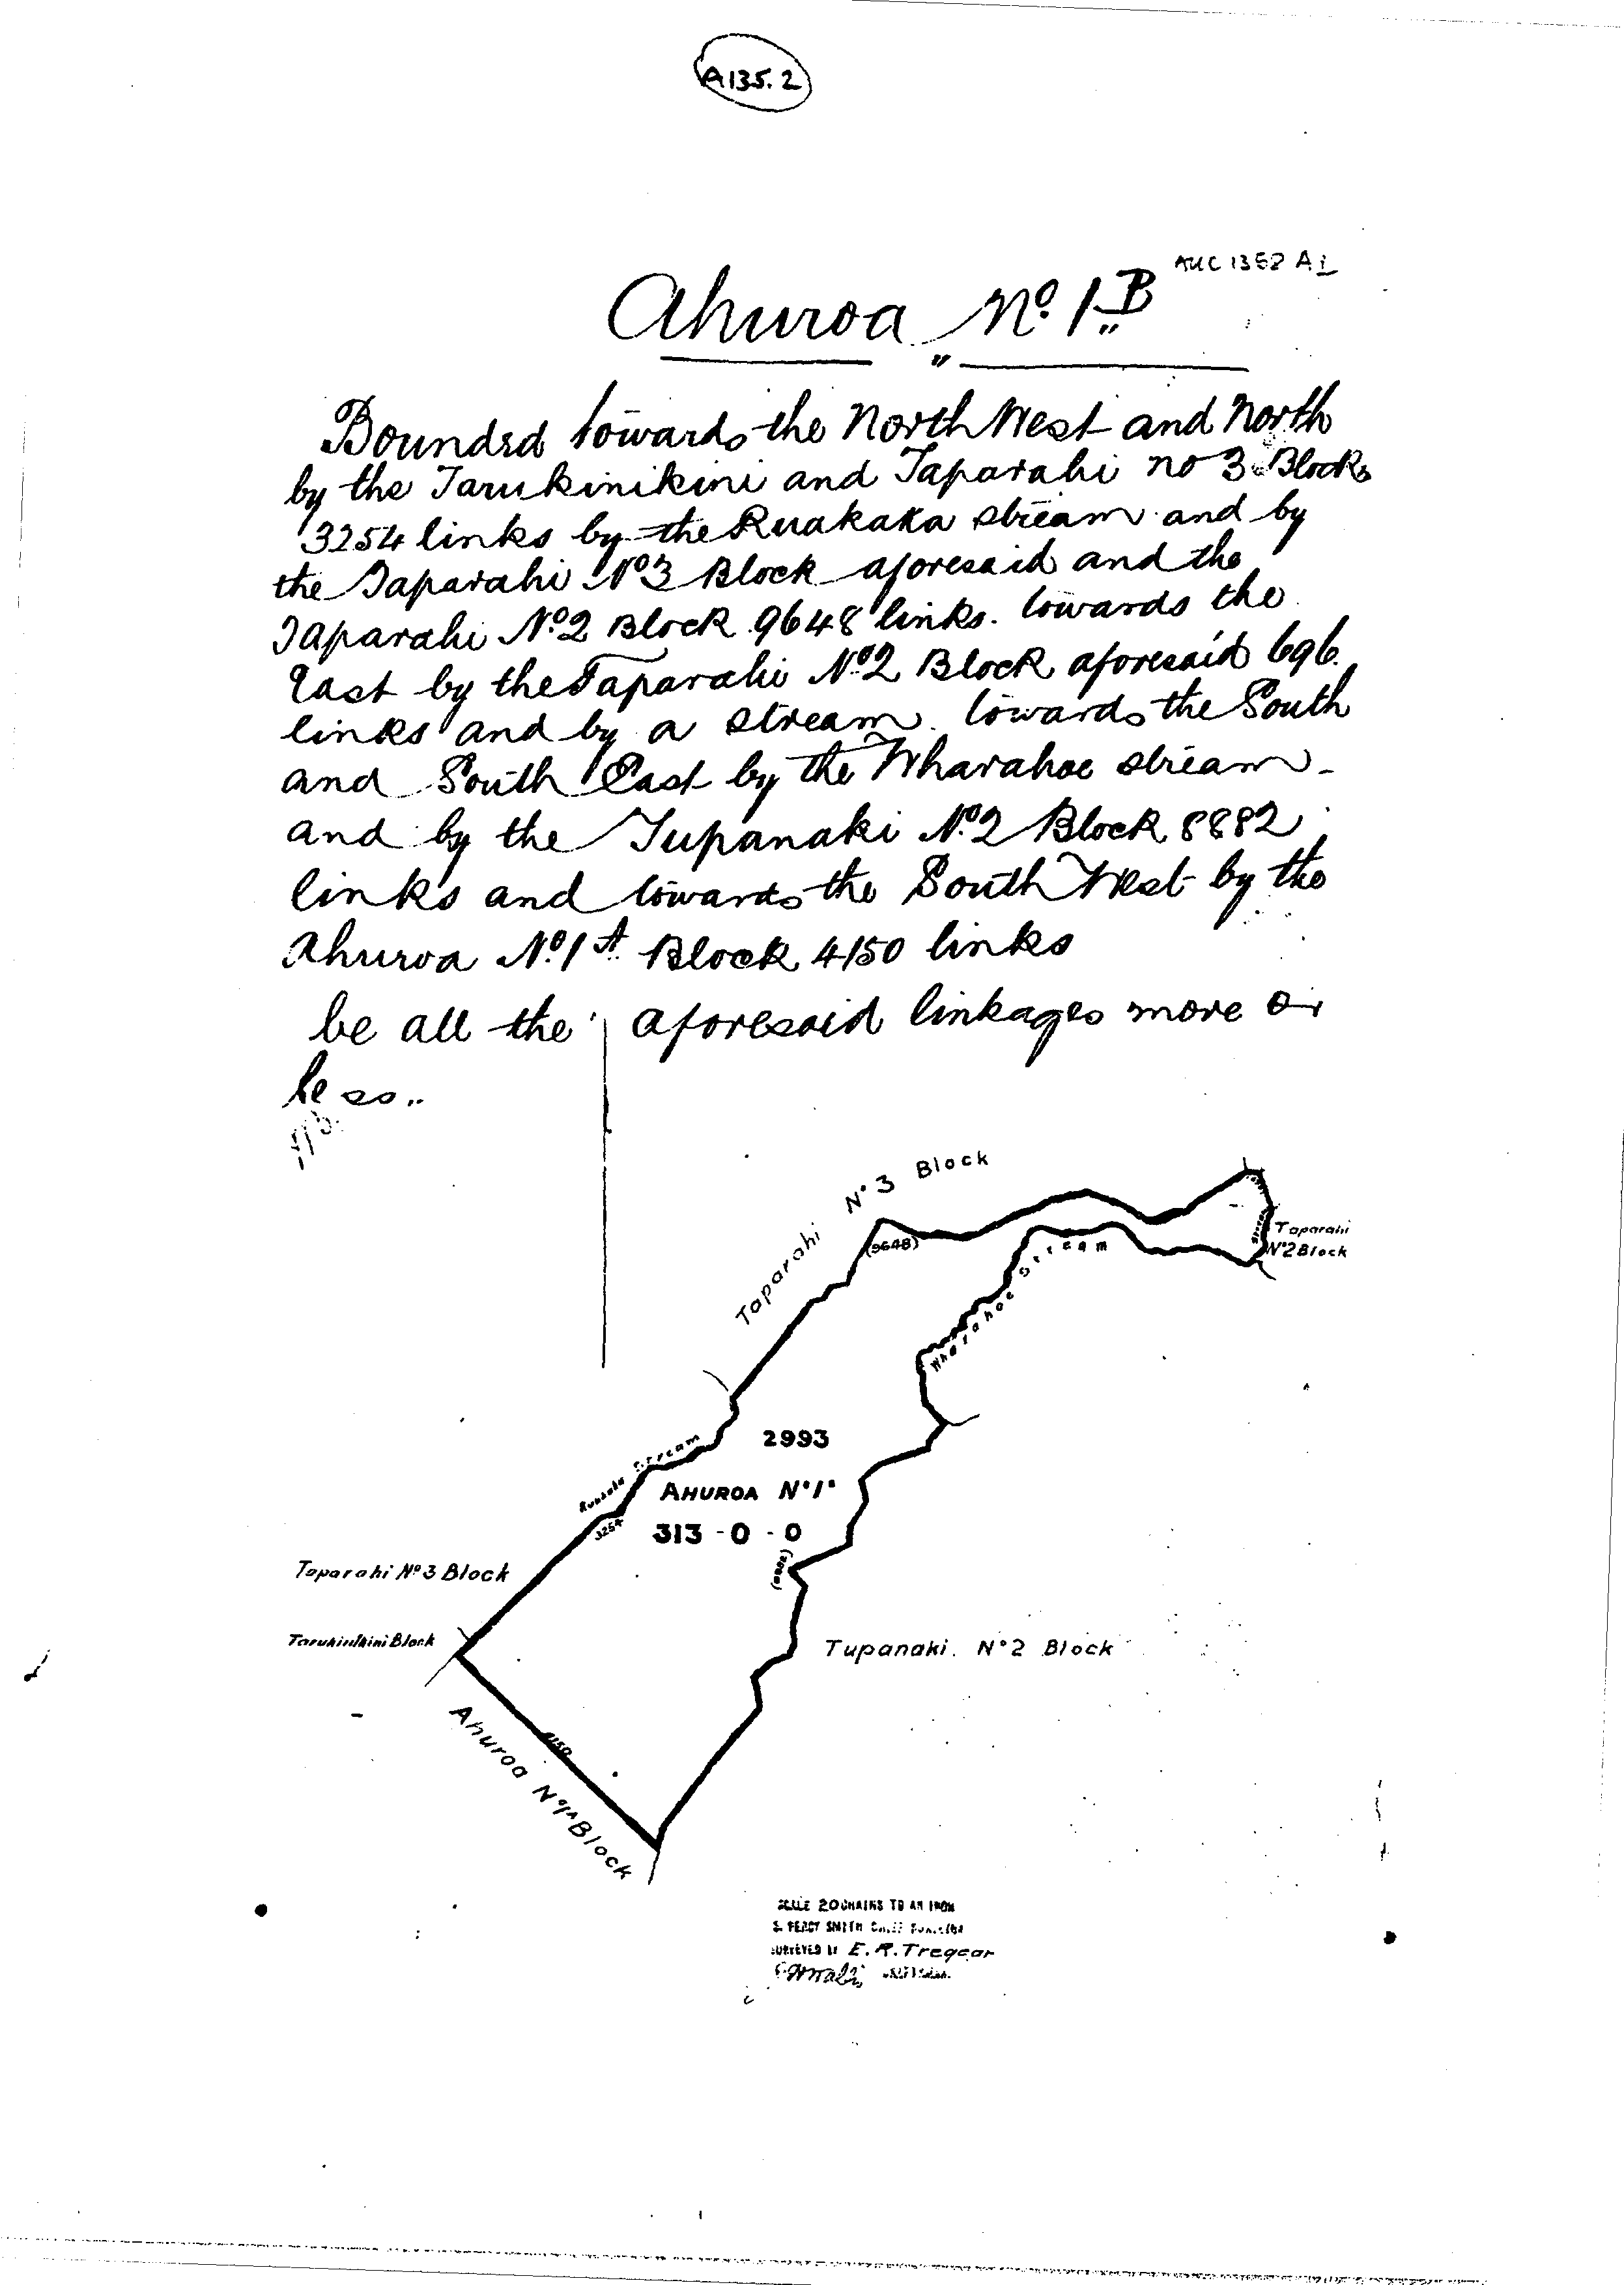 A135.2
AUC 1352 A1
Ahuroa No. 1B
Bounded towards the North West and North
by the Tarukinikini and Taparahi no 3 Blocks
3254 links by the Ruakaka stream and by
the Taparahi No 3 Block aforesaid and the
Taparahi No. 2 Block 9648 links. towards the
East by the Taparahi No. 2 Block aforesaid 696
links and by a stream. towards the South
and South East by the Wharahoe stream
and by the Tupanaki No. 2 Block 8882
links and towards the South West by the
Ahuroa No. 1A Block 4150 links
be all the aforesaid linkages more or
less..
Taparahi No 3 Block
(9648)
Taparahi
No 2 Block
Wharahoe Stream
2993
Stream
AHUROA No 1B
3254
313-0-0
(8882)
Taparahi No 3 Block
Tarukinikini Block
Tupanaki. No 2 Block
4150
Ahuroa No 1A Block
SCALE 20 CHAINS TO AN INCH
S. PERCY SMITH CHIEF SURVEYOR
SURVEYED BY E. R. Tregear